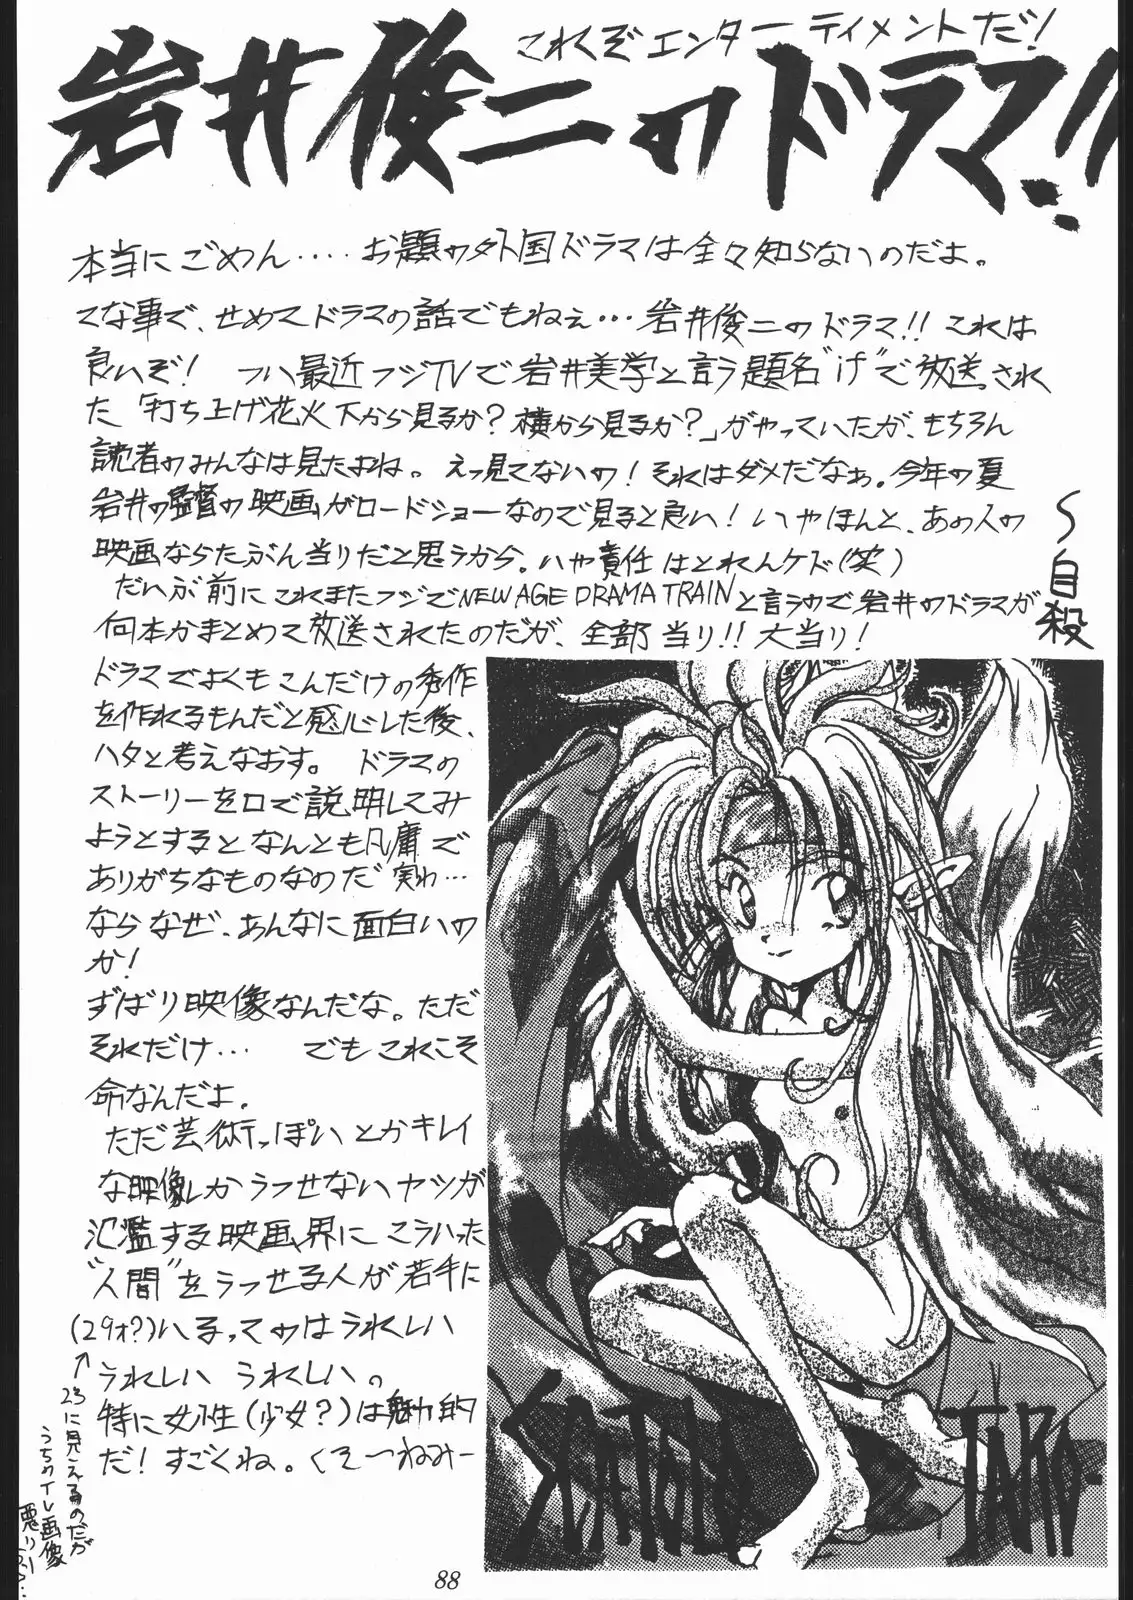 これぞエンターティメントだ!
岩井俊二のドラマ!!
本当にごめん....お題の外国ドラマは全々知らないのだよ。
てな事で、せめてドラマの話でもねぇ...岩井俊二のドラマ!!これは
良いぞ! つい最近フジTVで岩井美学と言う題名"げ"で放送された
た「打ち上げ花火下から見るか?横から見るか?」がやっていたが、もちろん
読者のみんなは見たよね。えっ見てないの!それはダメだなぁ。今年の夏
岩井の監督の映画がロードショーなので見ると良い!いやほんと、あの人の
映画ならたぶん当りだと思うから。いや責任はとれんケド(笑)
だいぶ前にこれまたフジでNEW AGE DRAMA TRAINと言うので岩井のドラマが
何本かまとめて放送されたのだが、全部当り!!大当り!
〜自殺
ドラマでよくもこんだけの秀作
を作れるもんだと感心した後、
ハタと考えなおす。 ドラマの
ストーリーを口で説明してみ
ようとするとなんとも凡庸で
ありがちなものなのだ 実わ...
ならなぜ、あんなに面白いの
か!
ずばり映像なんだな。ただ
それだけ... でもこれこそ
命なんだよ。
ただ芸術っぽいとかキレイ
な映像しかうつせないヤツが
氾濫する映画界にこういった
"人間"をうつせる人が若手に
(29才?)いるってのはうれしい
うれしい うれしい。
特に女性(少女?)は魅力的
だ!すごくね。くそーつねみー
↑
23に見えるのだが
うちのTV画像
悪いし...
SATOLU
TARO-
88